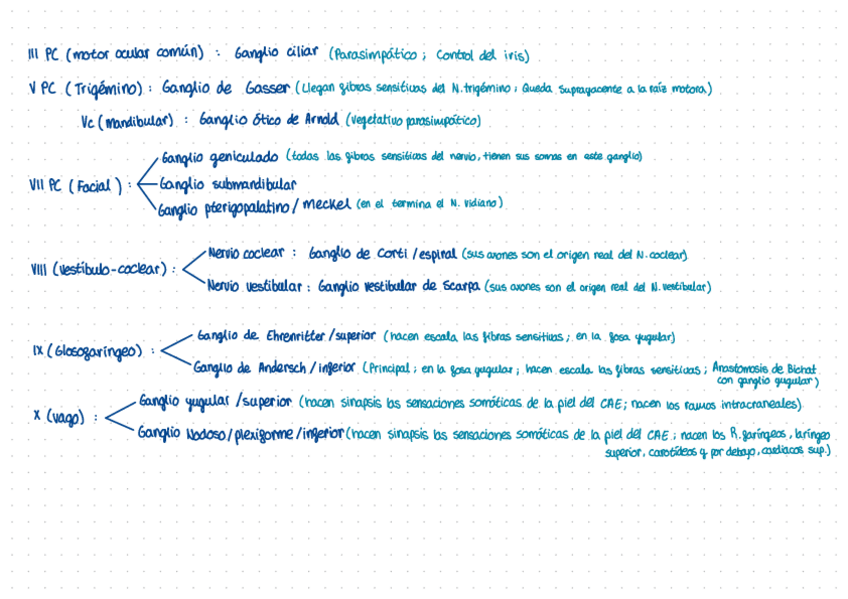 III PC (motor ocular común) : Ganglio ciliar (Parasimpático ; Control del iris)
V PC (Trigémino) : Ganglio de Gasser (Llegan fibras sensitivas del N.trigémino ; Queda suprayacente a la raíz motora)
Vc (mandibular) : Ganglio ótico de Arnold (vegetativo parasimpático)
Ganglio geniculado (todas las fibras sensitivas del nervio, tienen sus somas en este ganglio)
VII PC (Facial) : Ganglio submandibular
Ganglio pterigopalatino / Meckel (en el termina el N. vidiano)
Nervio coclear : Ganglio de Corti / espiral (sus axones son el origen real del N.coclear)
VIII (vestíbulo-coclear) :
Nervio vestibular : Ganglio vestibular de Scarpa (sus axones son el origen real del N.vestibular)
Ganglio de Ehrenritter / superior (hacen escala las fibras sensitivas ; en la fosa yugular)
IX (Glosofaríngeo) :
Ganglio de Andersch / inferior (Principal ; en la fosa yugular ; hacen escala las fibras sensitivas ; Anastomosis de Bichat
con ganglio yugular)
Ganglio yugular / superior (hacen sinapsis las sensaciones somáticas de la piel del CAE ; nacen los ramos intracraneales)
X (vago) :
Ganglio Nodoso / plexiforme / inferior (hacen sinapsis las sensaciones somáticas de la piel del CAE ; nacen los R.faríngeos, laríngeo
superior, carotídeos y por debajo, cardiacos sup.)